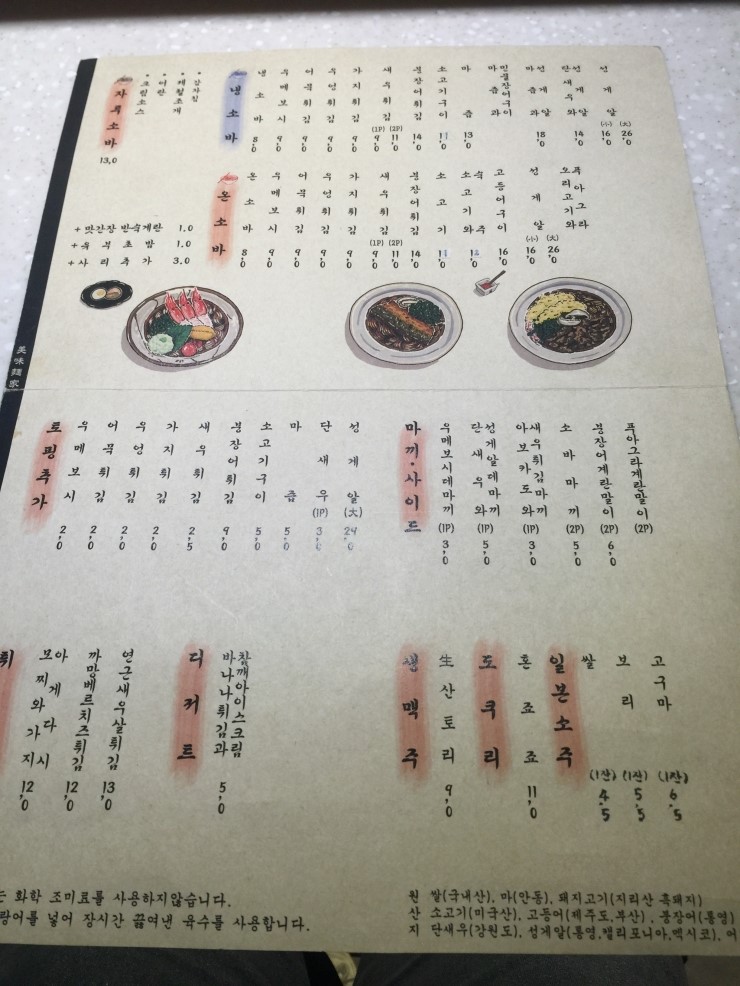 냉소바
냉소바 8,0
우메보시 9,0
어묵튀김 9,0
우엉튀김 9,0
가지튀김 9,0
새우튀김 (1P) 9,0 (2P) 11,0
붕장어튀김 14,0
소고기구이 11,0
마즙 13,0
마즙과 민물장어구이
마즙과 성게알 18,0
단새우와 성게알 14,0
성게알 (小) 16,0 (大) 26,0
자루소바
13,0
• 크림소스
• 어란
• 제철조개
• 감자칩
온소바
온소바 8,0
우메보시 9,0
어묵튀김 9,0
우엉튀김 9,0
가지튀김 9,0
새우튀김 (1P) 9,0 (2P) 11,0
붕장어튀김 14,0
소고기 11,0
소고기와 숙주
고등어구이 16,0
성게알 (小) 16,0 (大) 26,0
오리고기와 푸아그라
+ 맛간장 반숙계란 1.0
+ 유부초밥 1.0
+ 사리추가 3.0
美味麺家
토핑추가
우메보시 2,0
어묵튀김 2,0
우엉튀김 2,0
가지튀김 2,0
새우튀김 2,5
붕장어튀김 9,0
소고기구이 5,0
마즙 5,0
단새우 (1P) 3,0
성게알 (大) 24,0
마끼·사이드
우메보시데마끼 (1P) 3,0
단새우와 성게알데마끼 (1P) 5,0
아보카도와 새우튀김마끼 (1P) 3,0
소바마끼 (2P) 5,0
붕장어계란말이 (2P) 6,0
푸아그라계란말이 (2P)
튀
모찌와 가지 아게다시 12,0
까망베르치즈튀김 12,0
연근새우살튀김 13,0
디저트
바나나튀김과 참깨아이스크림 5,0
생맥주
生산토리 9,0
도쿠리
혼죠죠 11,0
일본소주
쌀 (1잔) 4.5
보리 (1잔) 5.5
고구마 (1잔) 6.5
는 화학 조미료를 사용하지않습니다.
랑어를 넣어 장시간 끓여낸 육수를 사용합니다.
원산지
쌀(국내산), 마(안동), 돼지고기(지리산 흑돼지)
소고기(미국산), 고등어(제주도,부산), 붕장어(통영)
단새우(강원도), 성게알(통영,캘리포니아,멕시코), 어